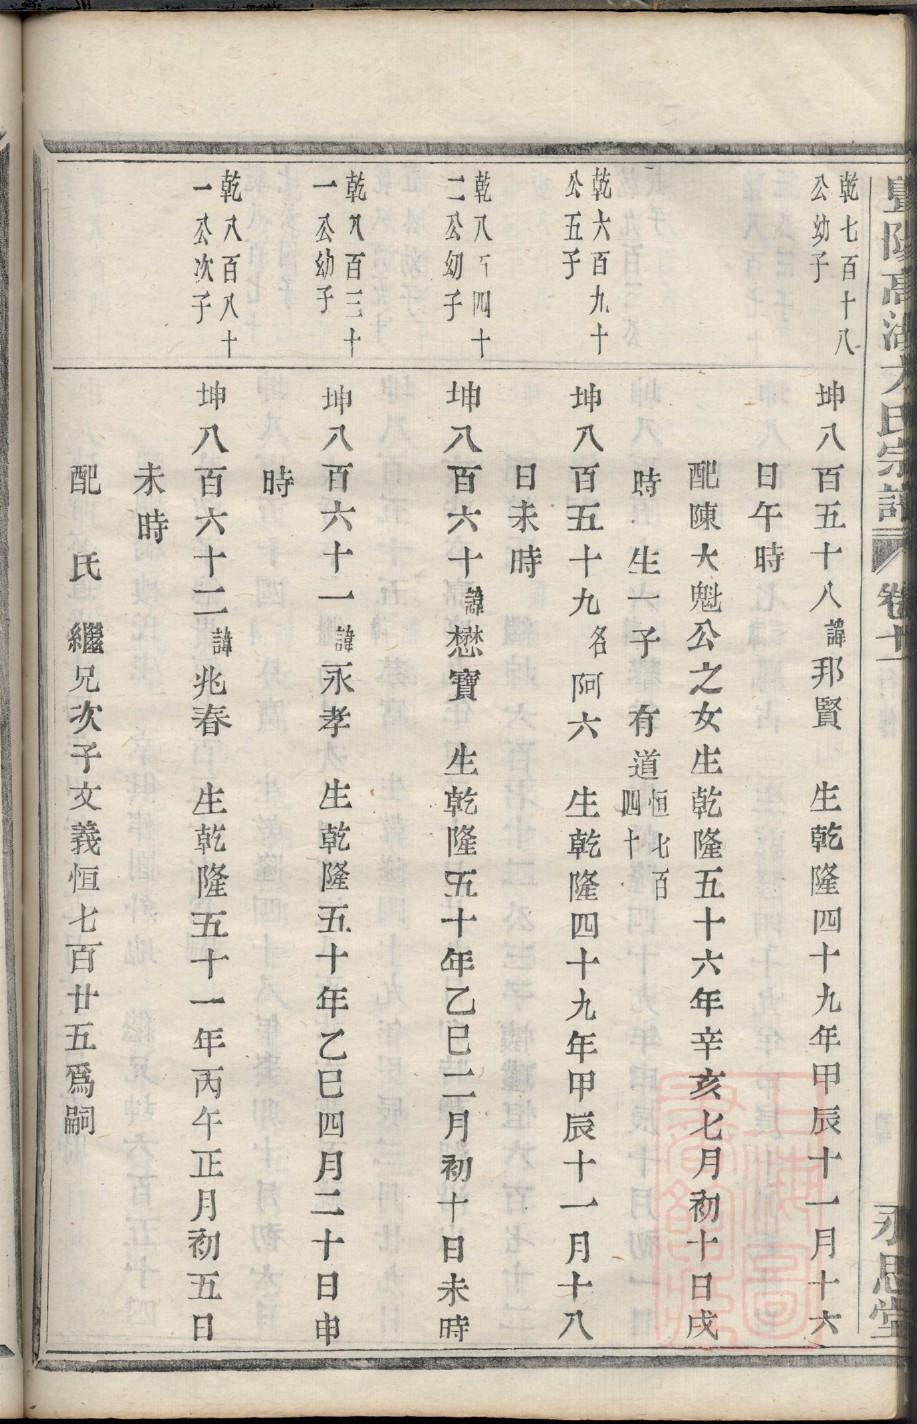 暨陽高湖方氏宗譜 卷十一 永思堂
乾七百十八
公幼子
坤八百五十八諱邦賢 生乾隆四十九年甲辰十一月十六
日午時
配陳大魁公之女生乾隆五十六年辛亥七月初十日戌
時 生一子有道恒七百四十
乾六百九十
公五子
坤八百五十九名阿六 生乾隆四十九年甲辰十一月十八
日未時
乾八百四十
二公幼子
坤八百六十諱懋寶 生乾隆五十年乙巳二月初十日未時
乾八百三十
一公幼子
坤八百六十一諱永孝 生乾隆五十年乙巳四月二十日申
時
乾八百八十
一公次子
坤八百六十二諱兆春 生乾隆五十一年丙午正月初五日
未時
配 氏 繼兄次子文義恒七百廿五爲嗣